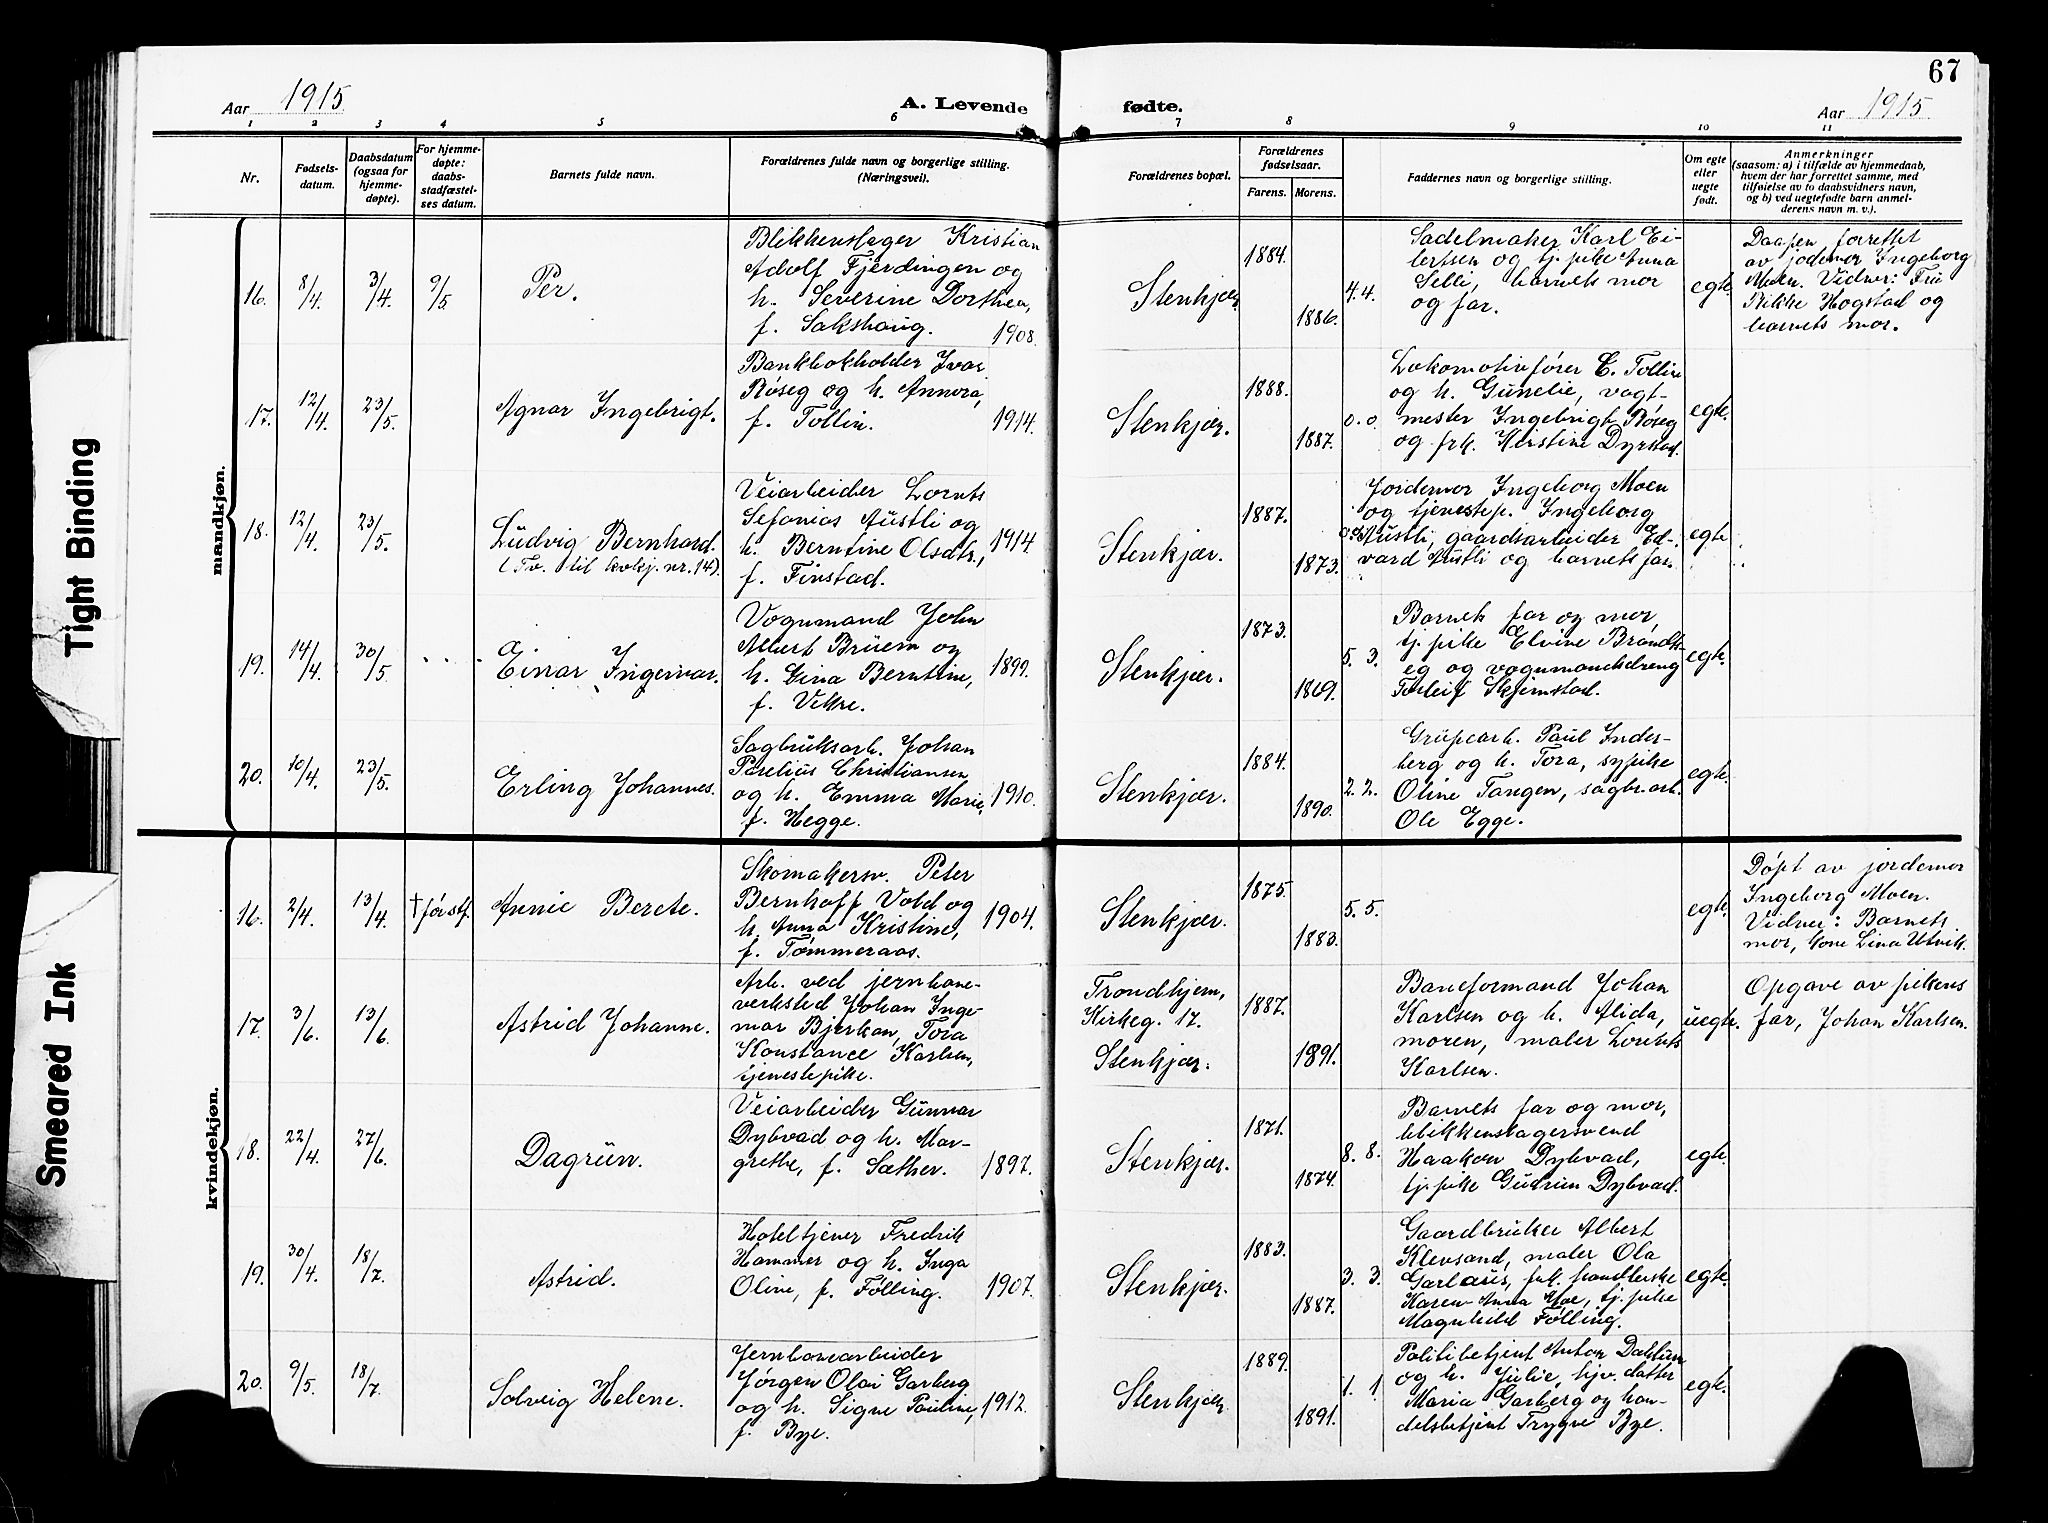 67
Aar 1915.
A. Levende
fødte.
Aar 1915.
1 2 3 4 5 6 7 8 9 10 11
Nr.
Fødsels-
datum.
Daabsdatum
(ogsaa for
hjemme-
døpte).
For hjemme-
døpte:
daabs-
stadfæstel-
ses datum.
Barnets fulde navn.
Forældrenes fulde navn og borgerlige stilling.
(Næringsvei).
Forældrenes bopæl.
Forældrenes
fødselsaar.
Farens. Morens.
Faddernes navn og borgerlige stilling.
Om egte
eller
uegte
født.
Anmerkninger
(saasom: a) i tilfælde av hjemmedaab,
hvem der har forrettet samme, med
tilføielse av to daabsvidners navn,
og b) ved uegtefødte barn anmel-
derens navn m. v.).
mandkjøn.
16. 8/4. 3/4. 9/5 Per.
Blikkenslager Kristian
Adolf Fjerdingen og
h. Severine Dorthea,
f. Sakshaug. 1908.
Stenkjær. 1884. 1886. 4. 4.
Sadelmaker Karl Ei-
lertsen og tj. pike Anna
Selli, barnets mor
og far.
egte.
Daapen forrettet
av jodemor Ingeborg
Moen. Vidner: Fru
Rikke Hogstad og
barnets mor.
17. 12/4. 23/5. Agnar Ingebrigt.
Bankbokholder Ivar
Røseg og h. Annora,
f. Tollin. 1914.
Stenkjær. 1888. 1887. 0. 0.
Lokomotivfører C. Tollin
og h. Gunelie, vagt-
mester Ingebrigt Røseg
og frk. Kristine Dyrstad.
egte.
18. 12/4. 23/5. Ludvig Bernhard.
(Tv. til kvkj. nr. 14).
Veiarbeider Lornts
Sefanias Austli og
h. Berntine Olsdtr., 1914
f. Finstad.
Stenkjær. 1887. 1873.
Jordemor Ingeborg Moen
og tjenestep. Ingeborg
Austli, gaardsarbeider Ed-
vard Austli og barnets far.
egte
19. 14/4. 30/5 Einar Ingemar.
Vognmand John
Albert Brüem og
h. Gina Berntine, 1899.
f. Vikre.
Stenkjær. 1873. 1869. 5. 3.
Barnets far og mor,
tj. pike Elvine Brandts-
eg og vognmandsdreng
Torleif Skjemstad.
egte.
20. 10/4. 23/5. Erling Johannes.
Sagbruksarb. Johan
Parelius Christiansen
og h. Emma Marie, 1910.
f. Hegge.
Stenkjær. 1884. 1890. 2. 2.
Grubearb. Paul Inder-
berg og h. Tora, sypike
Oline Tangen, sagbr.arb.
Ole Egge.
egte.
kvindekjøn.
16. 2/4. 13/4. † før stf. Annie Berete.
Skomakersv. Peter
Bernhoff Vold og
h. Anna Kristine, 1904.
f. Tømmeraas.
Stenkjær. 1875. 1883. 5. 5.
egte.
Døpt av jordemor
Ingeborg Moen.
Vidner: Barnets
mor, kone Lina Utvik.
17. 3/6. 13/6. Astrid Johanne.
Arb. ved jernbane-
verksted Johan Inge-
mar Bjerkan, Tora
Konstance Karlsen,
tjenestepike.
Trondhjem,
Kirkeg. 17.
Stenkjær.
1887. 1891.
Baneformand Johan
Karlsen og h. Alida,
moren, maler Lorents
Karlsen.
uegte.
Opgave av pikens
far, Johan Karlsen.
18. 22/4. 27/6. Dagrun.
Veiarbeider Gunnar
Dybvad og h. Mar-
grethe, f. Sæther. 1897.
Stenkjær. 1871. 1874. 8. 8.
Barnets far og mor,
blikkenslagersvend
Haakon Dybvad,
tj. pike Gudrun Dybvad.
egte.
19. 30/4. 18/7. Astrid.
Hoteltjener Fredrik
Hammer og h. Inga
Oline, f. Følling. 1907.
Stenkjær. 1883. 1887. 3. 3.
Gaardbruker Albert
Klevsand, maler Ola
Garlaus, frk. handlerske
Karen Anna Moe, tj. pike
Magnhild Følling.
egte.
20. 9/5. 18/7. Solveig Helene.
Jernbanearbeider
Jørgen Olai Garberg
og h. Signe Pauline, 1912.
f. Bye.
Stenkjær. 1889. 1891. 1. 1.
Politibetjent Anton Dahlum
og h. Julie, hjv. datter
Maria Garberg og han-
delsbetjent Trygve Bye.
egte.
Tight Binding
Smeared Ink